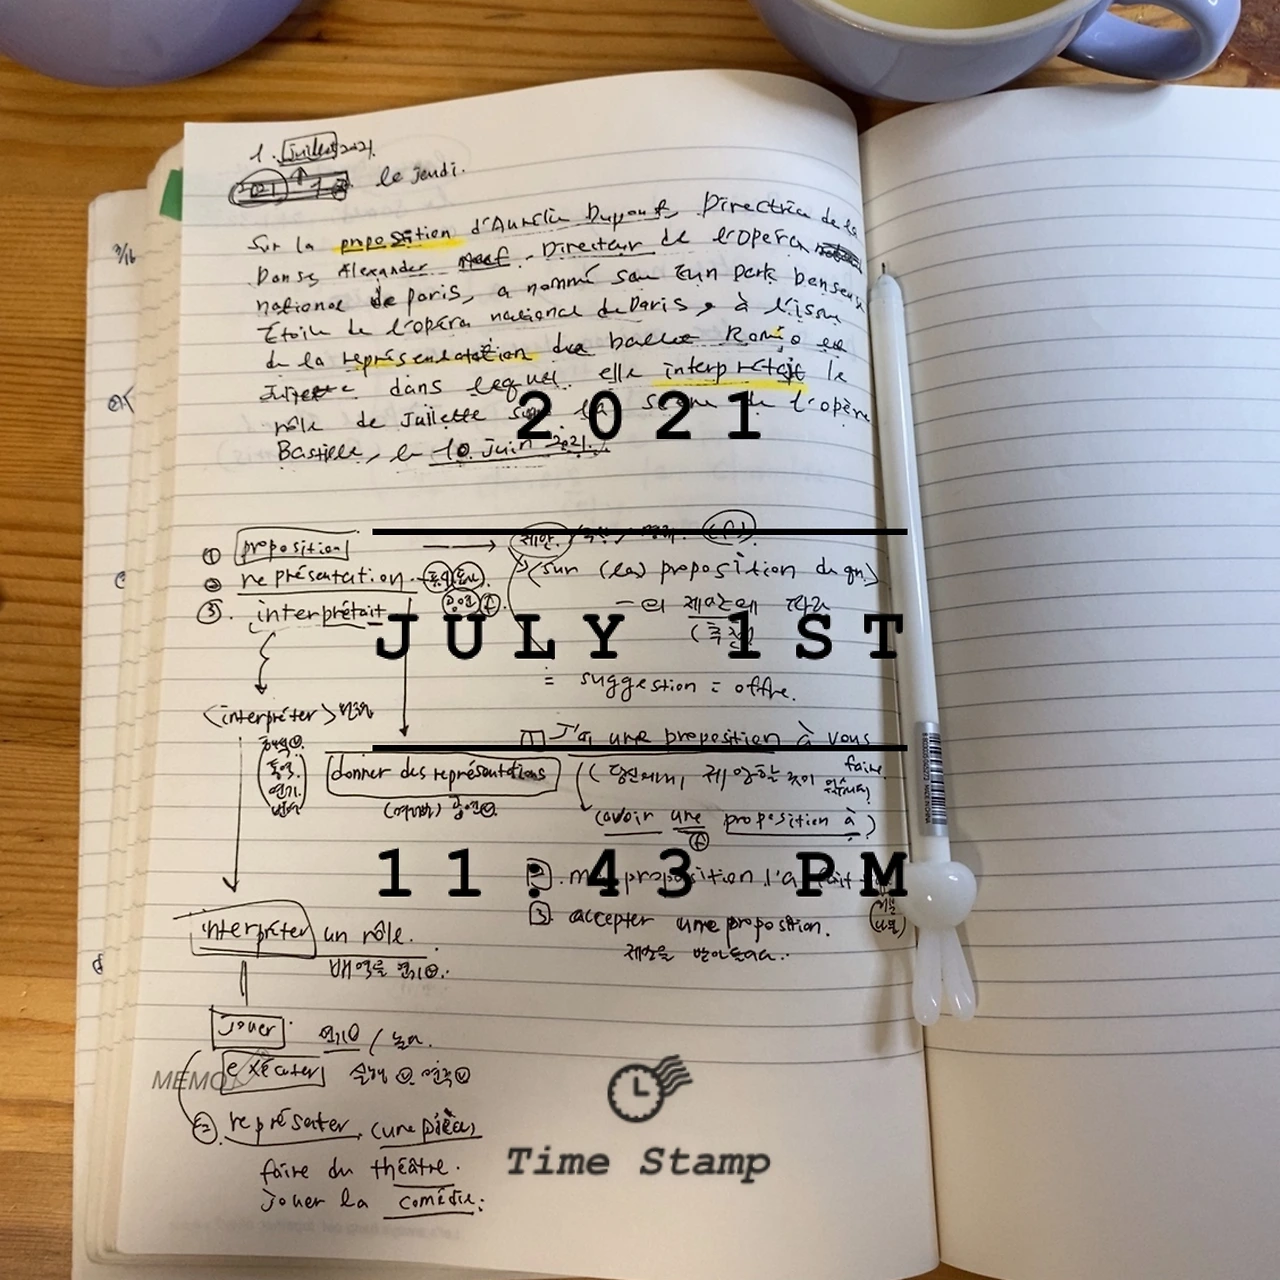 1. juillet 2021.
le jeudi.
Sur la proposition d'Aurélie Dupont, Directrice de la
Danse, Alexander Neef, Directeur de l'opéra
national de paris, a nommé Sae Eun Park Danseuse
Étoile de l'opéra national de Paris, à l'issue
de la représentation du ballet Roméo et
Juliette dans lequel elle interprétait le
rôle de Juilette sur la scène de l'opéra
Bastille, le 10 juin 2021.
2021
3/16
① proposition → 제안, (f).
② représentation
공연 f
③. interprétait
(sur (la) proposition de qn)
~의 제안에 따라
JULY 1ST
= suggestion = offre.
<interpréter>
통역.
연기.
번역
donner des représentations
① J'ai une proposition à vous
faire.
(avoir une proposition à)
f
11:43 PM
② proposition
③ accepter une proposition.
제안을 받아들이다.
interpréter un rôle.
배역을 연기
jouer
연기 / 놀다.
exécuter
MEMO
représenter (une pièce)
faire du théâtre.
jouer la comédie.
Time Stamp